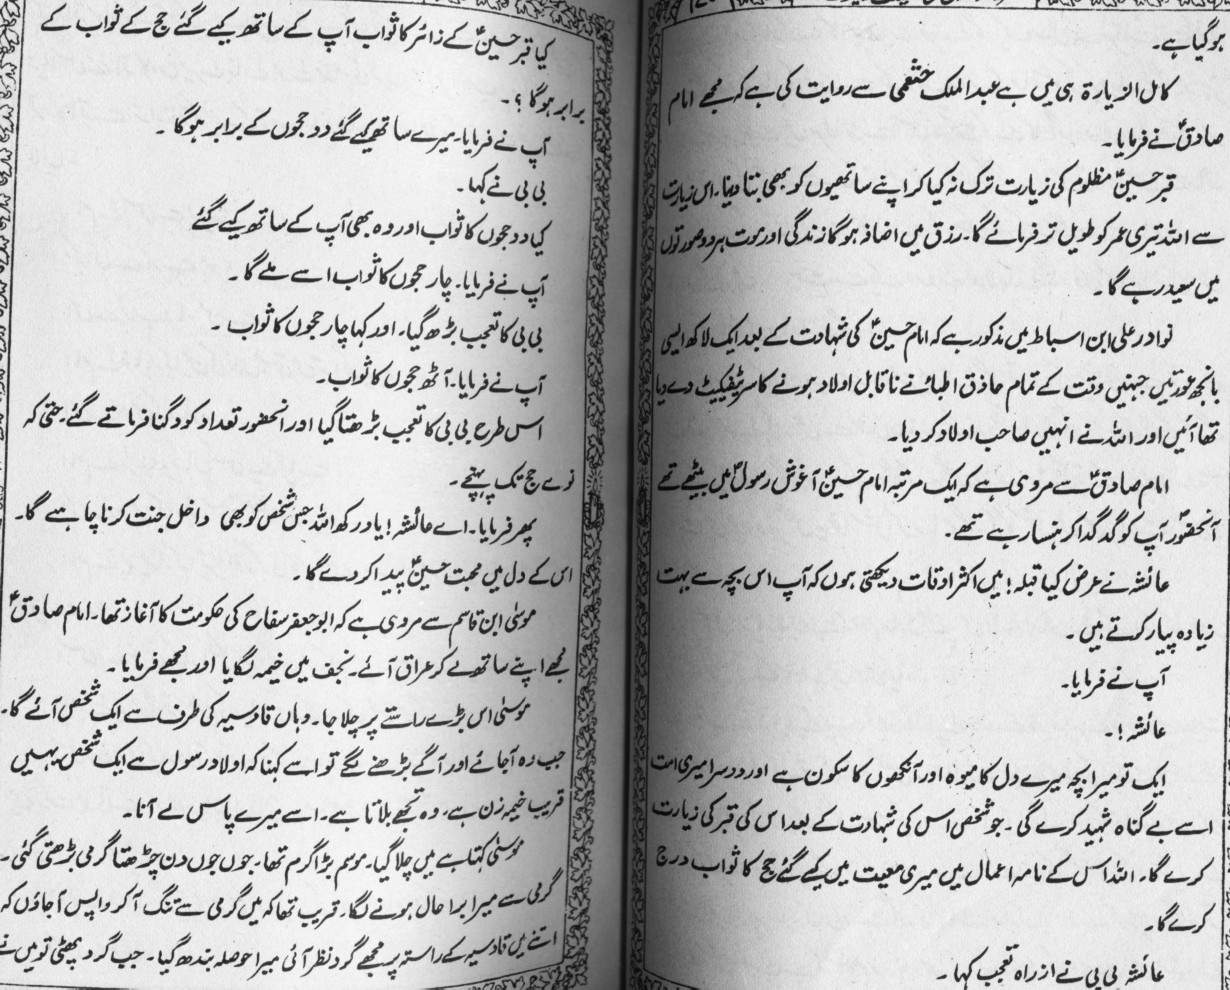 ہو گیا ہے۔
کامل الزیارۃ ہی میں ہے عبدالملک خثعمی سے روایت کی ہے کہ مجھے امام
صادقؑ نے فرمایا۔
قبر حسینؑ مظلوم کی زیارت ترک نہ کیا کر اپنے ساتھیوں کو بھی بتا دینا۔ اس زیارت
سے اللہ تیری عمر کو طویل تر فرمائے گا۔ رزق میں اضافہ ہو گا زندگی اور موت ہر دو صورتوں
میں سعید رہے گا۔
نوادر علی ابن اسباط میں مذکور ہے کہ امام حسینؑ کی شہادت کے بعد ایک لاکھ ایسی
بانجھ عورتیں جنہیں وقت کے تمام حاذق اطباء نے ناقابل اولاد ہونے کا سرٹیفکیٹ دے دیا
تھا آئیں اور اللہ نے انہیں صاحب اولاد کر دیا۔
امام صادقؑ سے مروی ہے کہ ایک مرتبہ امام حسینؑ آغوش رسولؐ میں بیٹھے تھے
آنحضورؐ آپ کو گدگدا کر ہنسا رہے تھے۔
عائشہ نے عرض کیا قبلہ! میں اکثر اوقات دیکھتی ہوں کہ آپ اس بچہ سے بہت
زیادہ پیار کرتے ہیں۔
آپ نے فرمایا۔
عائشہ!۔
ایک تو میرا بچہ میرے دل کا میوہ اور آنکھوں کا سکون ہے اور دوسرا میری امت
اسے بے گناہ شہید کرے گی۔ جو شخص اس کی شہادت کے بعد اس کی قبر کی زیارت
کرے گا۔ اللہ اس کے نامہ اعمال میں میری معیت میں کیے گئے حج کا ثواب درج
کرے گا۔
عائشہ بی بی نے از راہ تعجب کہا۔
کیا قبر حسینؑ کے زائر کا ثواب آپ کے ساتھ کیے گئے حج کے ثواب کے
برابر ہو گا؟۔
آپ نے فرمایا۔ میرے ساتھ کیے گئے دو حجوں کے برابر ہو گا۔
بی بی نے کہا۔
کیا دو حجوں کا ثواب اور وہ بھی آپ کے ساتھ کیے گئے
آپ نے فرمایا۔ چار حجوں کا ثواب اسے ملے گا۔
بی بی کا تعجب بڑھ گیا۔ اور کہا چار حجوں کا ثواب۔
آپ نے فرمایا۔ آٹھ حجوں کا ثواب۔
اس طرح بی بی کا تعجب بڑھتا گیا اور انحضور تعداد کو دگنا فرماتے گئے۔ حتیٰ کہ
نوے حج تک پہنچے۔
پھر فرمایا۔ اے عائشہ! یاد رکھ اللہ جس شخص کو بھی داخل جنت کرنا چاہے گا۔
اس کے دل میں محبت حسینؑ پیدا کر دے گا۔
موسیٰ ابن قاسم سے مروی ہے کہ ابو جعفر سفاح کی حکومت کا آغاز تھا۔ امام صادقؑ
مجھے اپنے ساتھ لے کر عراق آئے۔ نجف میں خیمہ لگایا اور مجھے فرمایا۔
موسیٰ اس بڑے راستے پر چلا جا۔ وہاں قادسیہ کی طرف سے ایک شخص آئے گا۔
جب وہ آجائے اور آگے بڑھنے لگے تو اسے کہنا کہ اولاد رسول سے ایک شخص یہیں
قریب خیمہ زن ہے، وہ تجھے بلاتا ہے۔ اسے میرے پاس لے آنا۔
موسیٰ کہتا ہے میں چلا گیا۔ موسم بڑا گرم تھا۔ جوں جوں دن چڑھتا گرمی بڑھتی گئی۔
گرمی سے میرا برا حال ہونے لگا۔ قریب تھا کہ میں گرمی سے تنگ آ کر واپس آ جاؤں کہ
اتنے میں قادسیہ کے راستہ پر مجھے گرد نظر آئی میرا حوصلہ بندھ گیا۔ جب گرد پھٹی تو میں نے